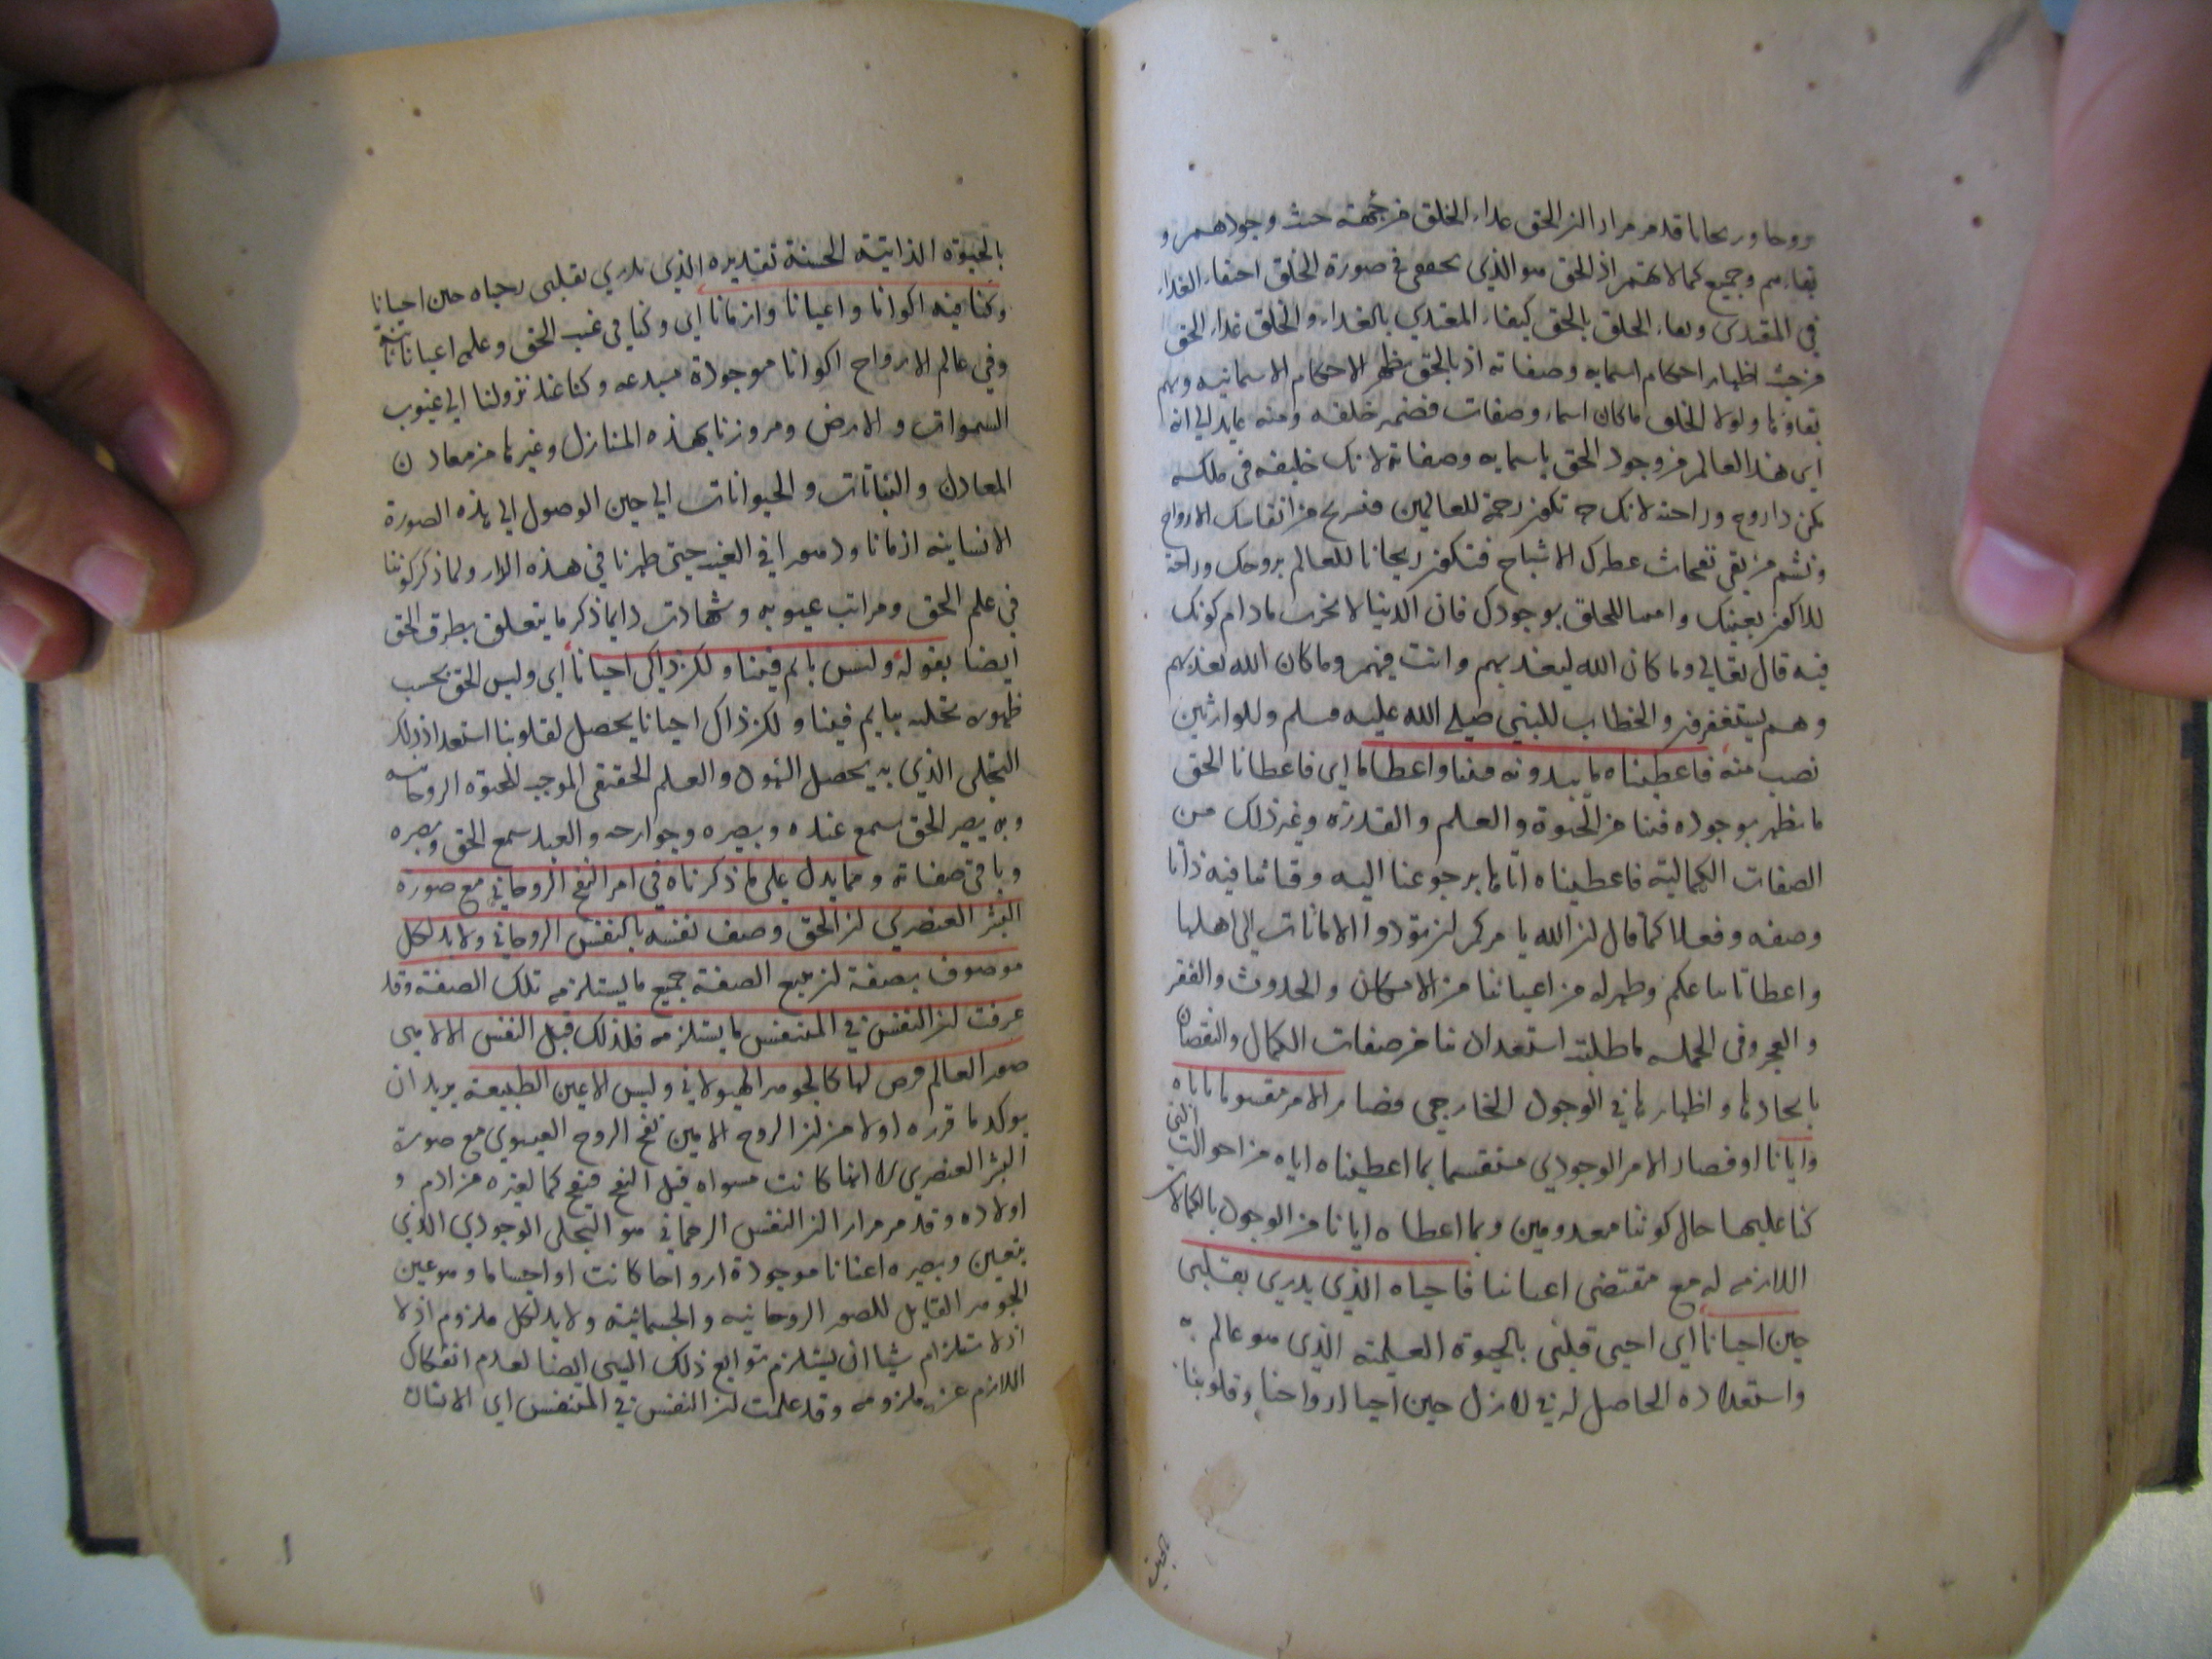 روحا وريحانا قد مر مرارا ان الحق غداء الخلق من جهة حيث وجودهم و
بقاءهم وجميع كمالاتهم اذ الحق هو الذي يختفى في صورة الخلق اختفاء الغداء
في المغتدى وبقاء الخلق بالحق كبقاء المغتدي بالغداء والخلق غداء الحق
من حيث اظهار احكام اسمايه وصفاته اذ بالحق يظهر الاحكام الاسمائيه وبهم
بقاؤنا ولولا الخلق ما كان اسماء وصفات فضمير خلقه ومنه عايد الي الله
اي هذا العالم من وجود الحق باسمايه وصفاته لانك خليفه في ملكه
تكن ذا روح وراحة لانك ح تكون رحمة للعالمين فتستريح من انفاسك الارواح
ونشم من نفحات عطرك الاشباح فتكون ريحانا للعالم بروحك وراحة
للاكوان بعينك وامنا للخلق بوجودك فان الدنيا لا تخرب مادام كونك
فيه قال تعالي وما كان الله ليعذبهم وانت فيهم وما كان الله معذبهم
وهم يستغفرون والخطاب للنبي صلي الله عليه وسلم وللوارثين
نصيب منه فاعطيناه ما يبدو به فينا واعطانا اي فاعطانا الحق
ما يظهر بوجوده فينا من الحيوة والعلم والقدرة وغير ذلك من
الصفات الكمالية فاعطيناه اياها برجوعنا اليه وفنائنا فيه ذاتا
وصفه وفعلا كما قال ان الله يامركم ان تؤدوا الامانات الى اهلها
واعطانا ما علم وظهر له من اعياننا من الامكان والحدوث والفقر
والعجز وفى الجمله ما طلبته استعداداتنا من صفات الكمال والنقصان
بايجادنا واظهارنا في الوجود الخارجي فصار الامر مقسوما باياه
وايانا او فصار الامر الوجودي منقسما بما اعطيناه اياه من احوالنا التي
كنا عليها حال كوننا معدومين وبما اعطاه ايانا من الوجود بالكمالات
اللازمه له مع مقتضى اعياننا فاحياه الذي يدري بقلبى
حين احيانا اي احيى قلبى بالحيوة العلمية الذي هو عالم به
واستعداده الحاصل له في الازل حين احيا ارواحنا وقلوبنا
بالحيوة الذاتية الحسنة تقديره الذي يدري بقلبى احياه حين احيانا
وكنا فيه اكوانا واعيانا وازمانا اي وكنا في غيب الحق وعلمه اعيانا ثابته
وفي عالم الارواح اكوانا موجودة مبدعه وكنا عند نزولنا الي غيوب
السموات والارض ومرورنا بهذه المنازل وغيرها من معادن
المعادن والنباتات والحيوانات الي حين الوصول الي هذه الصورة
الانسانيه ازمانا ودهورا في الغيب حتى ظهرنا في هذه الدار ولما ذكر كوننا
في علم الحق ومراتب غيوبه وشهادت دايما ذكر ما يتعلق بطرف الحق
ايضا بقوله وليس بدايم فينا ولكن ذاك احيانا اي وليس الحق بحسب
ظهوره تجليه بدايم فينا ولكن ذاك احيانا يحصل لقلوبنا استعداد ذلك
التجلي الذي به يحصل الشهود والعلم الحقيقي الموجب للحيوة الروحانيه
وبه يصير الحق سمع عبده وبصره وجوارحه والعبد سمع الحق وبصره
وباقي صفاته ومما يدل علي ما ذكرناه في امر النفخ الروحاني مع صورة
البشر العنصري ان الحق وصف نفسه بالنفس الروحاني ولا بد لكل
موصوف بصفة ان يتبع الصفة جميع ما يستلزمه تلك الصفة وقد
عرفت ان النفس في المتنفس ما يستلزمه فلذلك قبل النفس الالاهي
صور العالم فهو لها كالجوهر الهيولاني وليس الا عين الطبيعة يريد ان
يوكد ما قرره اولا من ان الروح الامين نفخ الروح العيسوي مع صورة
البشر العنصري لا انها كانت مسواه قبل النفخ فنفخ كما لغيره من ادم و
اولاده وقد مر مرارا ان النفس الرحماني هو التجلي الوجودي الذي
يتعين وبصيره اعيانا موجودة ارواحا كانت او اجساما وهو عين
الجوهر القابل للصور الروحانيه والجسمانية ولا بد لكل ملزوم اذ لا
اذ لا ستلزام شيا ان يستلزم توابع ذلك الشى ايضا لعدم انفكاك
اللازم عن ملزومه وقد علمت ان النفس في المتنفس اي الانسان